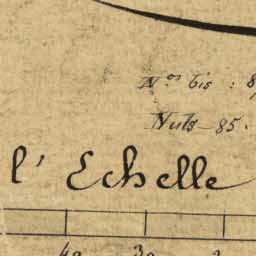 Nos bis : 8
Nuls - 85.
l' Echelle
40 30 2